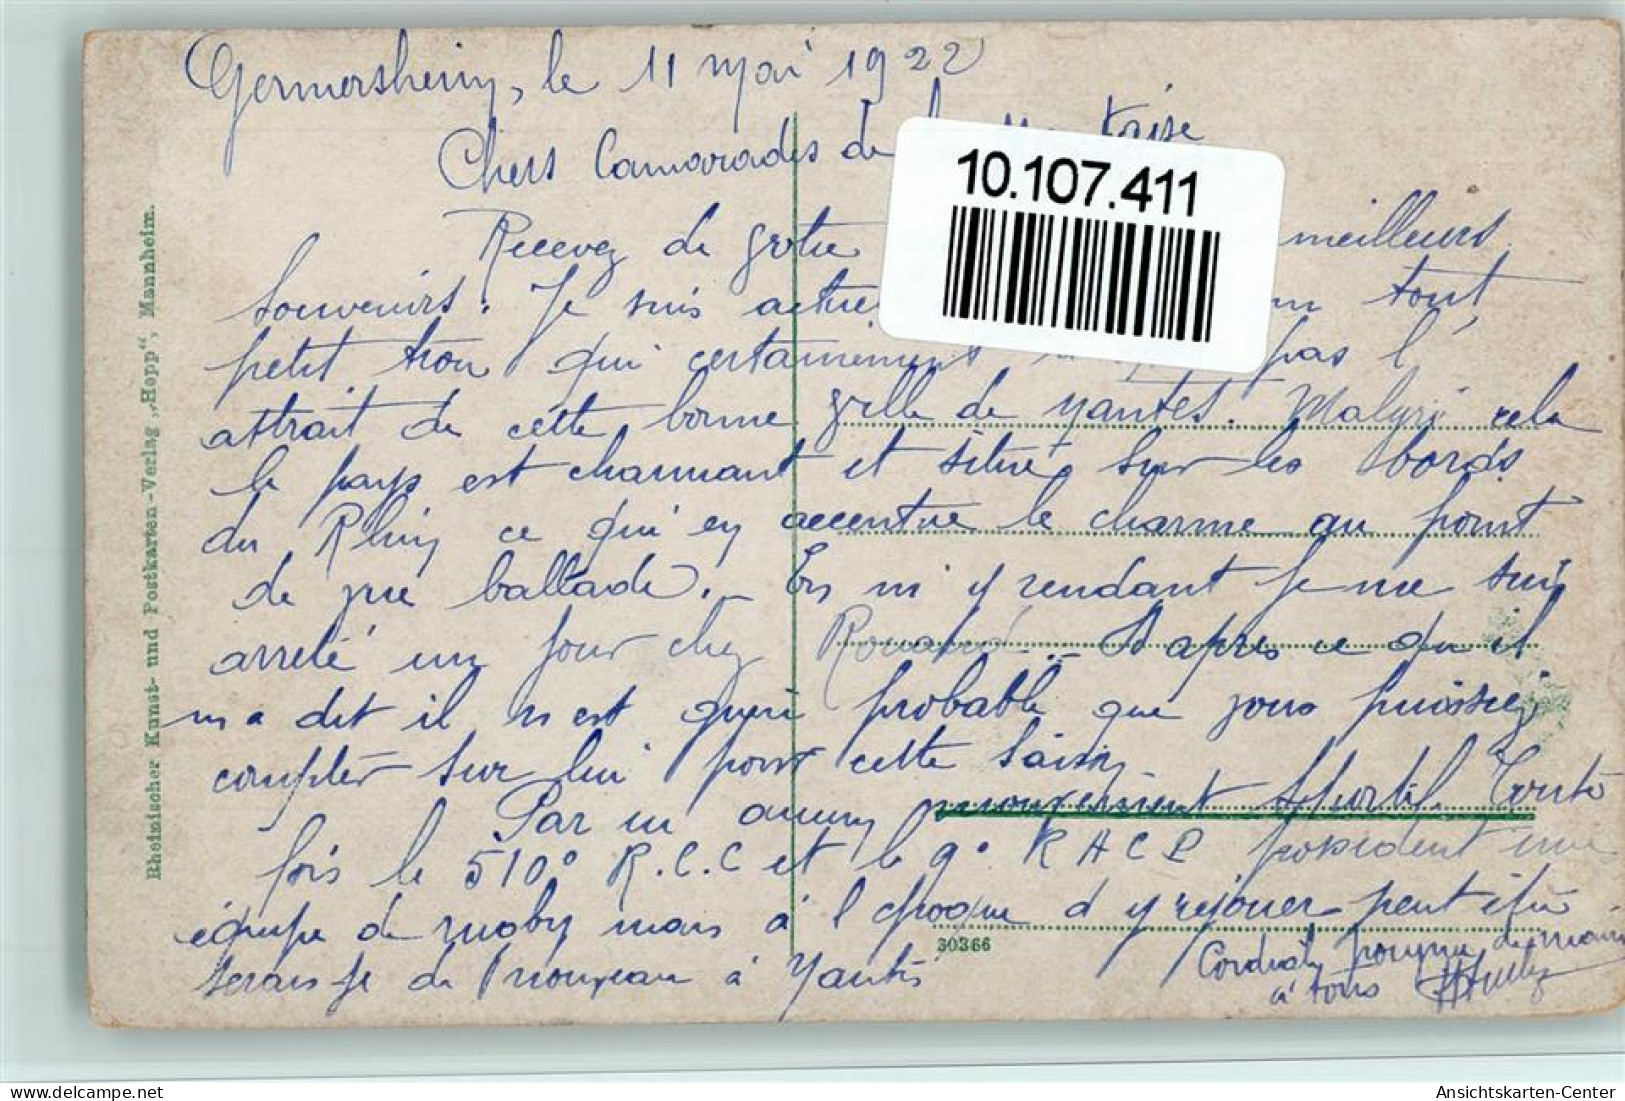 Germersheim, le 11 mai 1922
Chers Camarades de
Recevez de votre meilleurs
souvenirs. Je suis tout
petit trou qui certainement pas l'
attrait de cette bonne ville de Nantes. Malgré cela
le pays est charmant et situé sur les bords
du Rhin ce qui en accentue le charme au point
de vue ballade. En m'y rendant je me suis
arreté un jour chez D'après ce qu'il
m'a dit il n'est guère probable que vous puissiez
compter sur lui pour cette saison
Par ici aucun mouvement sportif. Toute
fois le 510° R.C.C et le 9° R A C P possèdent une
équipe de rugby mais à l'époque d'y rejouer peut être
serais-je de nouveau à Nantes
Cordiale poignée de main
à tous
10.107.411
Rheinischer Kunst- und Postkarten-Verlag „Hepp", Mannheim.
30366
Ansichtskarten-Center